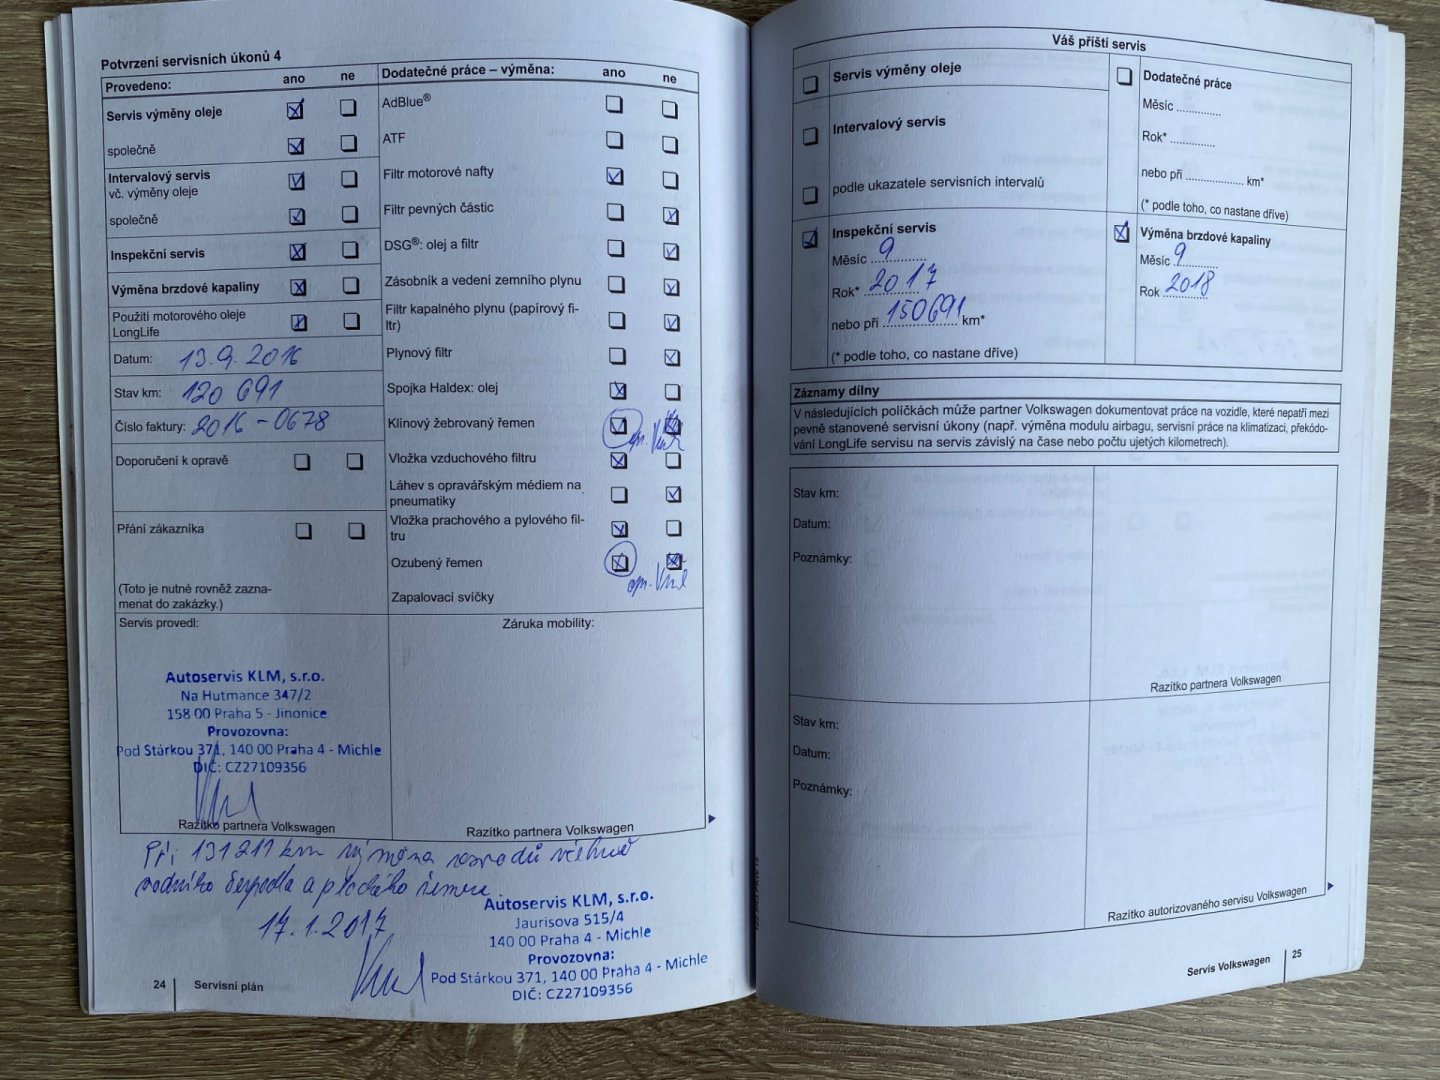 Potvrzení servisních úkonů 4
Provedeno: ano ne
Servis výměny oleje
společně
Intervalový servis
vč. výměny oleje
společně
Inspekční servis
Výměna brzdové kapaliny
Použití motorového oleje
LongLife
Datum: 13.9.2016
Stav km: 120 691
Číslo faktury: 2016-0678
Doporučení k opravě
Přání zákazníka
(Toto je nutné rovněž zazna-
menat do zakázky.)
Dodatečné práce – výměna: ano ne
AdBlue®
ATF
Filtr motorové nafty
Filtr pevných částic
DSG®: olej a filtr
Zásobník a vedení zemního plynu
Filtr kapalného plynu (papírový fi-
ltr)
Plynový filtr
Spojka Haldex: olej
Klínový žebrovaný řemen
opr.
Vložka vzduchového filtru
Láhev s opravářským médiem na
pneumatiky
Vložka prachového a pylového fil-
tru
Ozubený řemen
opr.
Zapalovací svíčky
Servis provedl:
Autoservis KLM, s.r.o.
Na Hutmance 347/2
158 00 Praha 5 - Jinonice
Provozovna:
Pod Stárkou 371, 140 00 Praha 4 - Michle
DIČ: CZ27109356
Razítko partnera Volkswagen
Záruka mobility:
Razítko partnera Volkswagen
Při 131211 km výměna rozvodů včetně
vodního čerpadla a plochého řemenu.
17.1.2017
Autoservis KLM, s.r.o.
Jaurisova 515/4
140 00 Praha 4 - Michle
Provozovna:
Pod Stárkou 371, 140 00 Praha 4 - Michle
DIČ: CZ27109356
24 Servisní plán
Váš příští servis
Servis výměny oleje
Intervalový servis
podle ukazatele servisních intervalů
Inspekční servis
Měsíc 9
Rok* 2017
nebo při 150691 km*
(* podle toho, co nastane dříve)
Dodatečné práce
Měsíc ............
Rok* ............
nebo při ............... km*
(* podle toho, co nastane dříve)
Výměna brzdové kapaliny
Měsíc 9
Rok 2018
Záznamy dílny
V následujících políčkách může partner Volkswagen dokumentovat práce na vozidle, které nepatří mezi
pevně stanovené servisní úkony (např. výměna modulu airbagu, servisní práce na klimatizaci, překódo-
vání LongLife servisu na servis závislý na čase nebo počtu ujetých kilometrech).
Stav km:
Datum:
Poznámky:
Razítko partnera Volkswagen
Stav km:
Datum:
Poznámky:
Razítko autorizovaného servisu Volkswagen
Servis Volkswagen 25